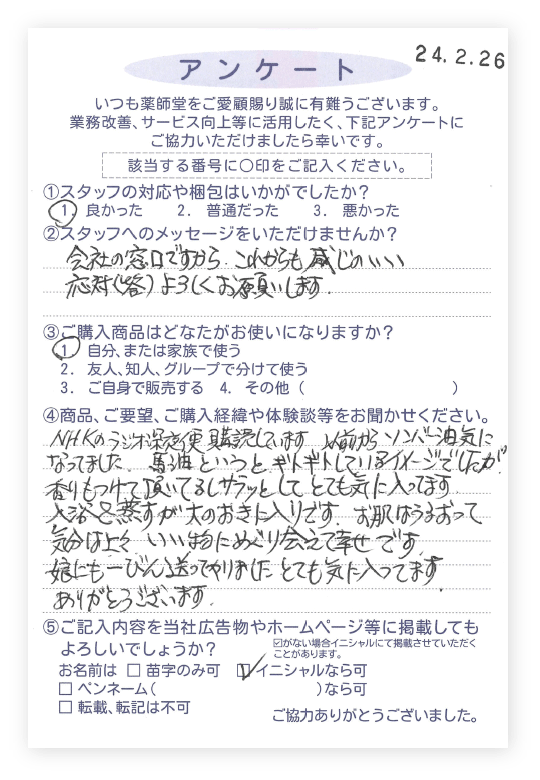 24.2.26
アンケート
いつも薬師堂をご愛顧賜り誠に有難うございます。
業務改善、サービス向上等に活用したく、下記アンケートに
ご協力いただけましたら幸いです。
該当する番号に〇印をご記入ください。
①スタッフの対応や梱包はいかがでしたか？
1. 良かった 2. 普通だった 3. 悪かった
②スタッフへのメッセージをいただけませんか？
会社の窓口ですから、これからも感じのいい
応対(答)よろしくお願いします.
③ご購入商品はどなたがお使いになりますか？
1. 自分、または家族で使う
2. 友人、知人、グループで分けて使う
3. ご自身で販売する 4. その他（ ）
④商品、ご要望、ご購入経緯や体験談等をお聞かせください。
NHKのラジオ深夜便購読しています 以前からソンバー油気に
なってました. 馬油というとギトギトしているイメージでしたが
香りもつけて頂いてるしサラッとして とても気に入ってます.
入浴と蒸すが大のお気に入りです. お肌はうるおって
気分は上々 いい物にめぐり会えて幸せです.
娘にも一びん送ってやりました とても気に入ってます
ありがとうございます.
⑤ご記入内容を当社広告物やホームページ等に掲載しても
よろしいでしょうか？
☑がない場合イニシャルにて掲載させていただく
ことがあります。
お名前は □ 苗字のみ可 ☑イニシャルなら可
□ ペンネーム（ ）なら可
□ 転載、転記は不可
ご協力ありがとうございました。